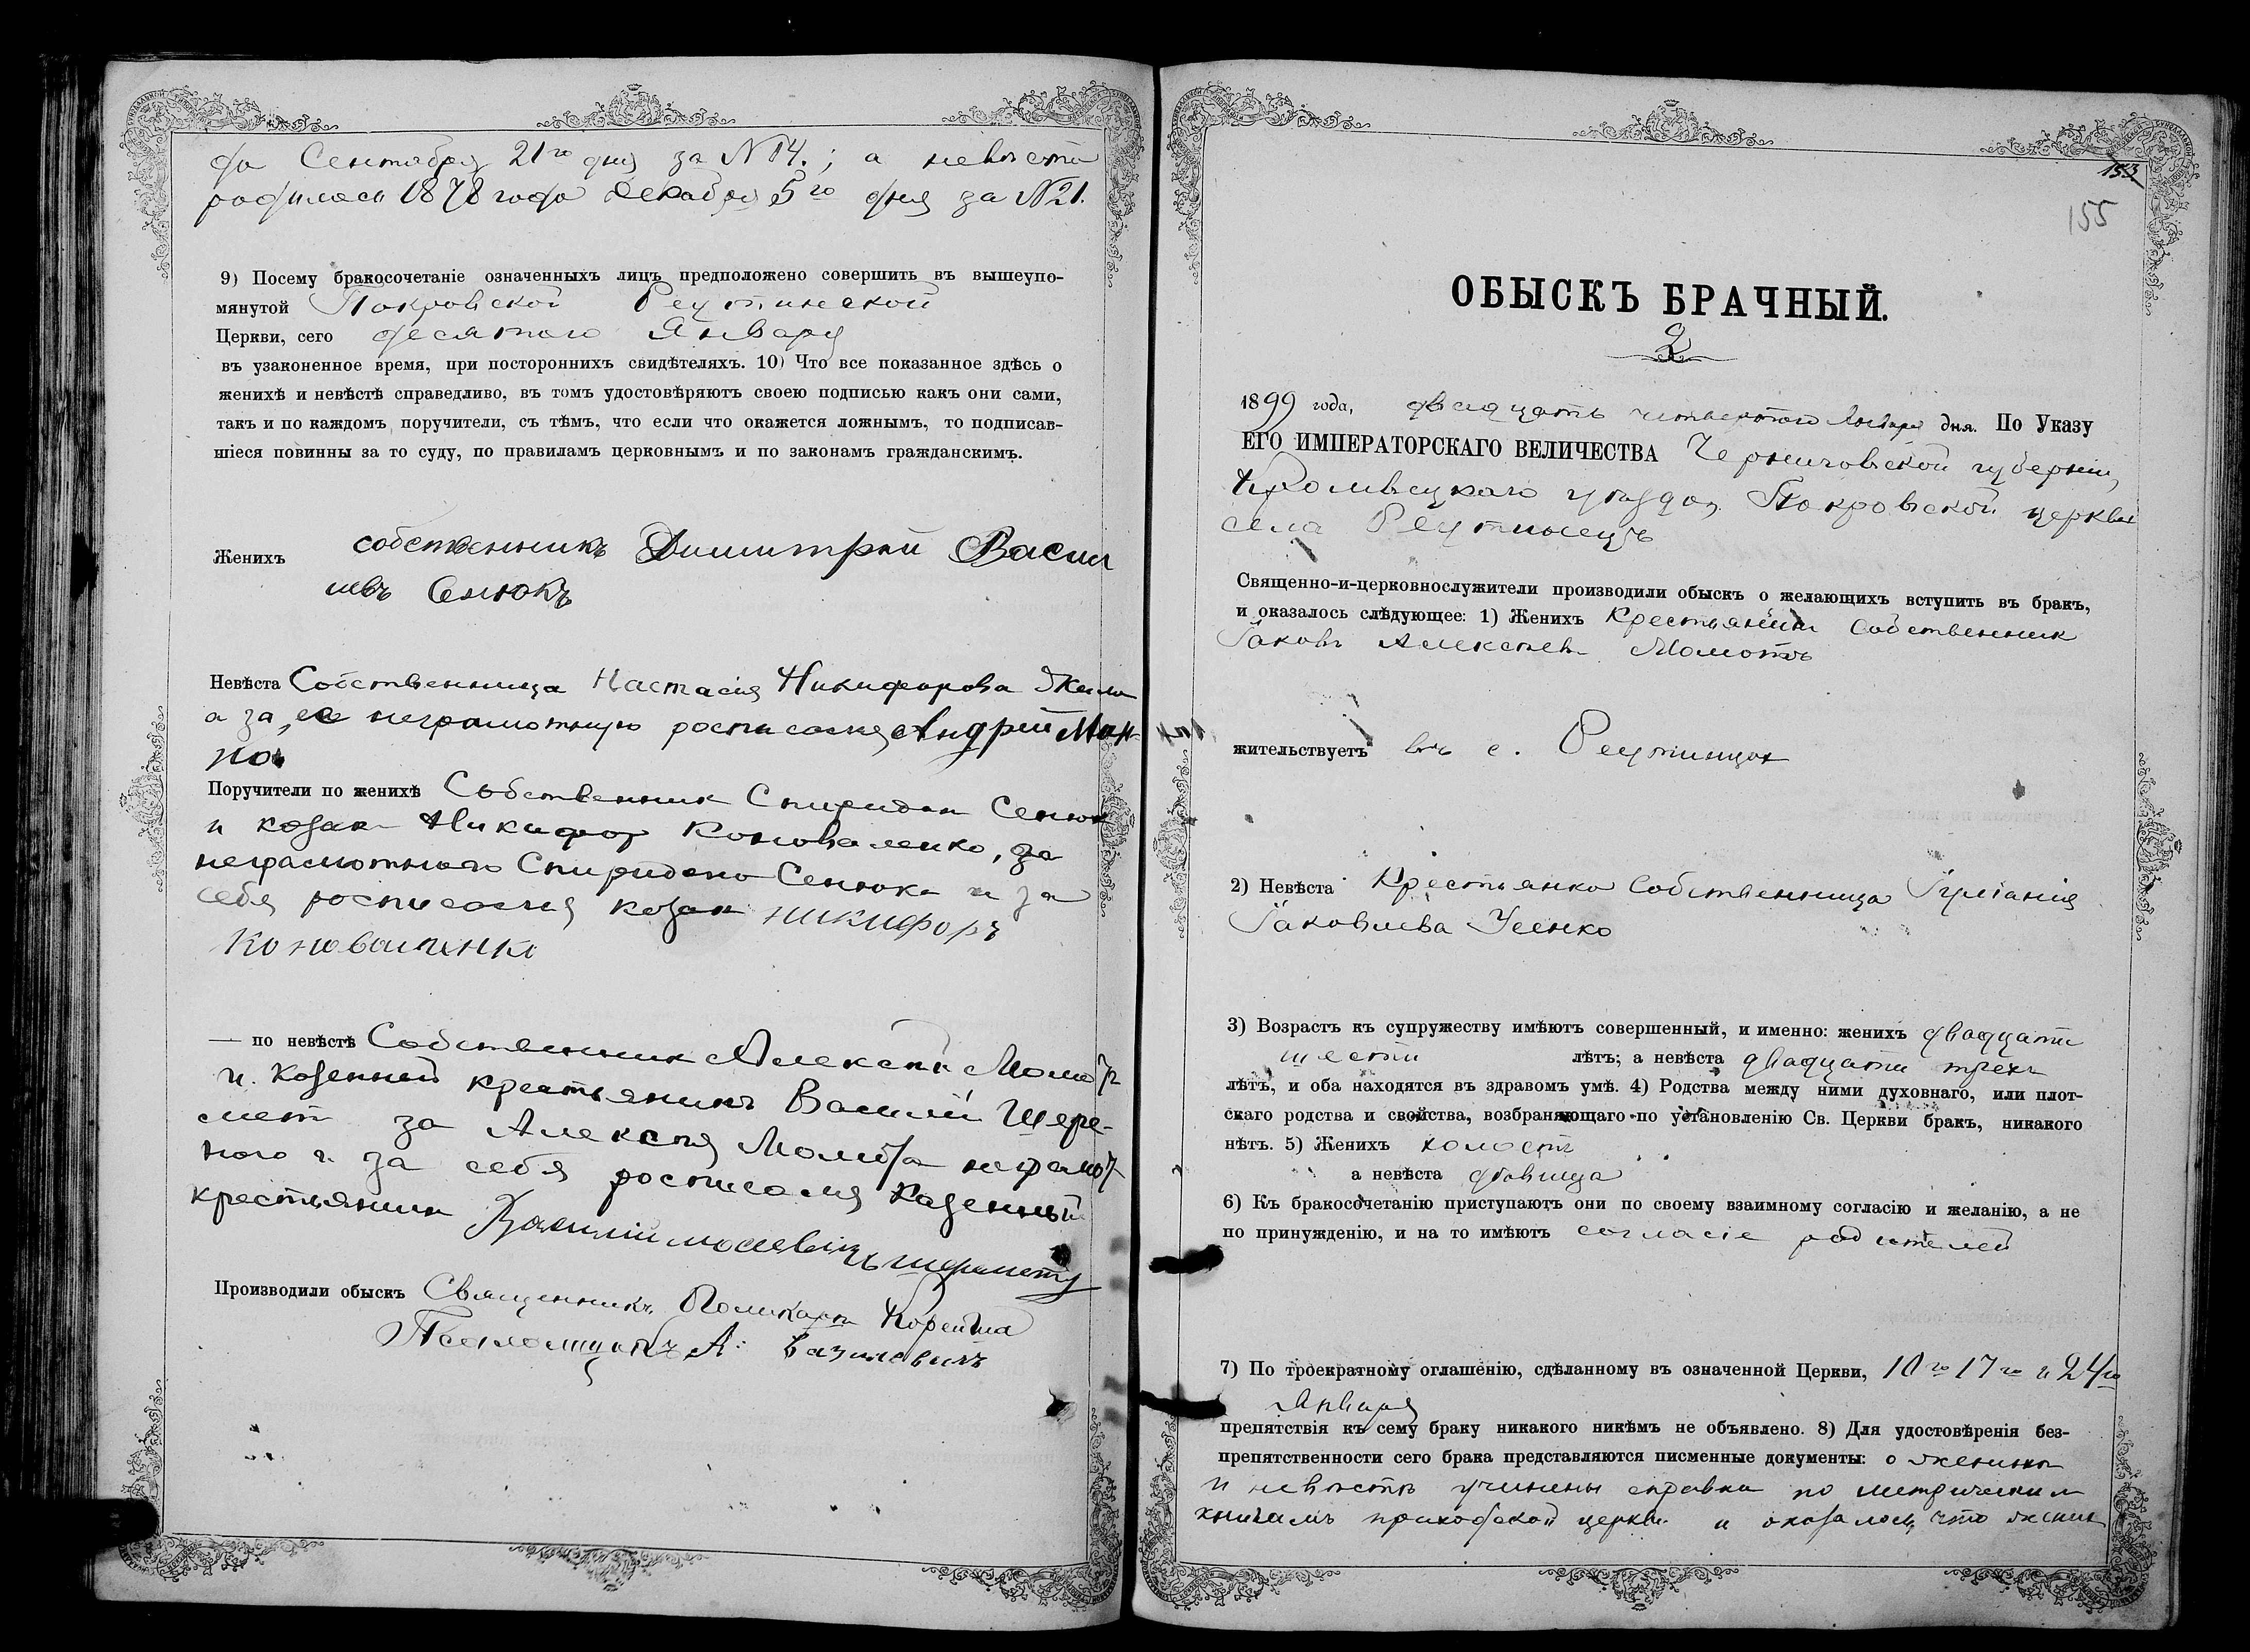 да Сентября 21го дня за №14.; а невѣста
родилась 1878 года Декабря 5го дня за №21.
9) Посему бракосочетаніе означенныхъ лицъ предположено совершить въ вышеупо-
мянутой Покровской Реутинской
Церкви, сего десятого Января
въ узаконенное время, при постороннихъ свидѣтеляхъ. 10) Что все показанное здѣсь о
женихѣ и невѣстѣ справедливо, въ томъ удостовѣряютъ своею подписью какъ они сами,
такъ и по каждомъ поручители, съ тѣмъ, что если что окажется ложнымъ, то подписав-
шіеся повинны за то суду, по правиламъ церковнымъ и по законамъ гражданскимъ.
Женихъ собственникъ Димитрій Васил
іевъ Сенюкъ
Невѣста Собственница Настасія Никифорова
а за ее неграмотную росписался Андрей
Поручители по женихѣ Собственник Спиридон Сенюк
и козак Никифор Коноваленко, за
неграмотного Спиридона Сенюка и за
себя росписался козак Никифоръ
Коноваленко
— по невѣстѣ Собственник Алексѣй Момот
и казенный крестьянинъ Василій Шере-
мет за Алексѣя Момота неграмот
ного и за себя росписался казенный
крестьянин Василій шереметъ
Производили обыскъ Священникъ Поликарпъ
Псаломщикъ А. Базилевичъ
153
155
ОБЫСКЪ БРАЧНЫЙ.
2
1899 года, двадцать четвертого Января дня. По Указу
ЕГО ИМПЕРАТОРСКАГО ВЕЛИЧЕСТВА Черниговской губерніи,
Кролевецкаго уѣзда, Покровской церкви
села Реутинецъ
Священно-и-церковнослужители производили обыскъ о желающихъ вступить въ бракъ,
и оказалось слѣдующее: 1) Женихъ Крестьянинъ Собственник
Іаковъ Алексѣевъ Момотъ
жительствуетъ въ с. Реутинцах
2) Невѣста Крестьянка Собственница Іуліанія
Іаковлева Усенко
3) Возрастъ къ супружеству имѣютъ совершенный, и именно: женихъ двадцати
шести лѣтъ; а невѣста двадцати трехъ
лѣтъ, и оба находятся въ здравомъ умѣ. 4) Родства между ними духовнаго, или плот-
скаго родства и свойства, возбраняющаго по установленію Св. Церкви бракъ, никакого
нѣтъ. 5) Женихъ холостъ
а невѣста дѣвица
6) Къ бракосочетанію приступаютъ они по своему взаимному согласію и желанію, а не
по принужденію, и на то имѣютъ согласіе родителей
7) По троекратному оглашенію, сдѣланному въ означенной Церкви, 10го 17го и 24го
Января
препятствія къ сему браку никакого никѣмъ не объявлено. 8) Для удостовѣренія без-
препятственности сего брака представляются писменные документы: о женихѣ
и невѣстѣ учинены справки по метрическим
книгамъ приходской церкви и оказалось, что жених